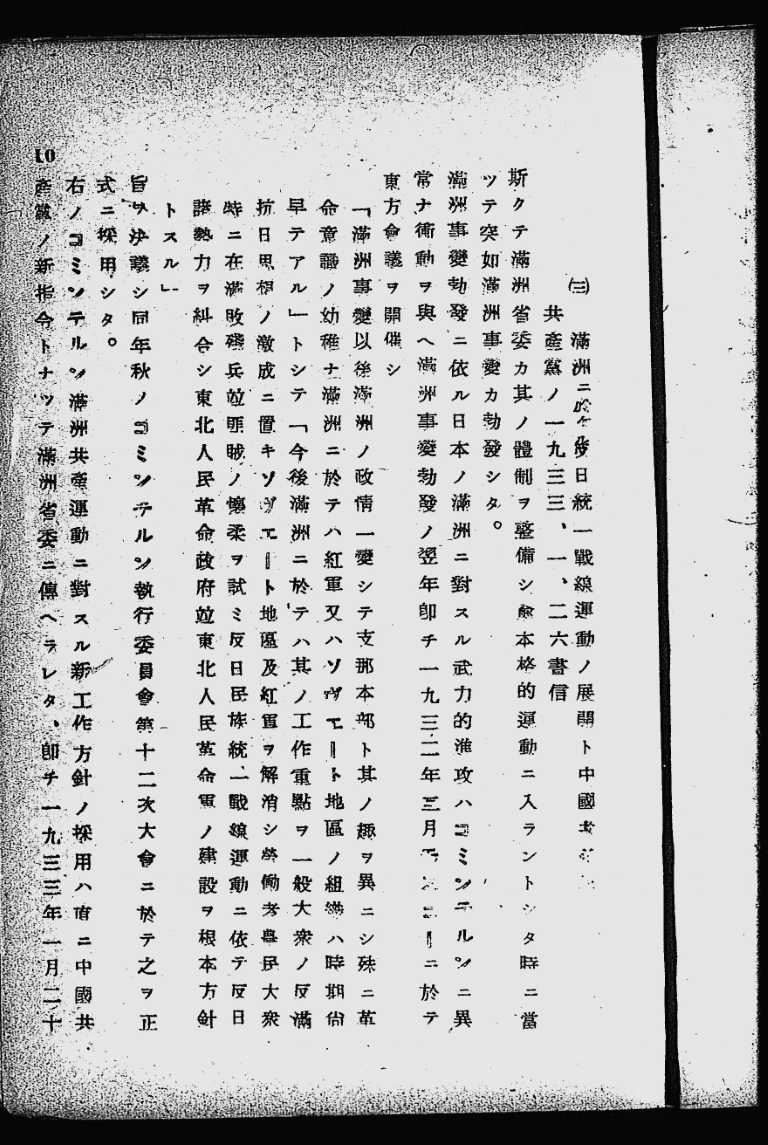 (三) 滿洲ニ於ケル反日統一戰線運動ノ展開ト中國
共產黨ノ一九三三、一、二六書信
斯クテ滿洲省委カ其ノ體制ヲ整備シ愈本格的運動ニ入ラントシタ時ニ當
ツテ突如滿洲事變カ勃發シタ。
滿洲事變勃發ニ依ル日本ノ滿洲ニ對スル武力的進攻ハコミンテルンニ異
常ナ衝動ヲ與ヘ滿洲事變勃發ノ翌年卽チ一九三二年三月ニ於テ
東方會議ヲ開催シ
「滿洲事變以後滿洲ノ政情一變シテ支那本部ト其ノ趣ヲ異ニシ殊ニ革
命意識ノ幼稚ナ滿洲ニ於テハ紅軍又ハソヴエート地區ノ組織ハ時期尙
早テアル」トシテ「今後滿洲ニ於テハ其ノ工作重點ヲ一般大衆ノ反滿
抗日思想ノ激成ニ置キソヴエート地區及紅軍ヲ解消シ勞働者農民大衆
特ニ在滿敗殘兵竝匪賊ノ懷柔ヲ試ミ反日民族統一戰線運動ニ依テ反日
諸勢力ヲ糾合シ東北人民革命政府竝東北人民革命軍ノ建設ヲ根本方針
トスル」
旨ヲ決議シ同年秋ノコミンテルン執行委員會第十二次大會ニ於テ之ヲ正
式ニ採用シタ。
右ノコミンテルン滿洲共產運動ニ對スル新工作方針ノ採用ハ直ニ中國共
產黨ノ新指令トナツテ滿洲省委ニ傳ヘラレタ、卽チ一九三三年一月二十
10